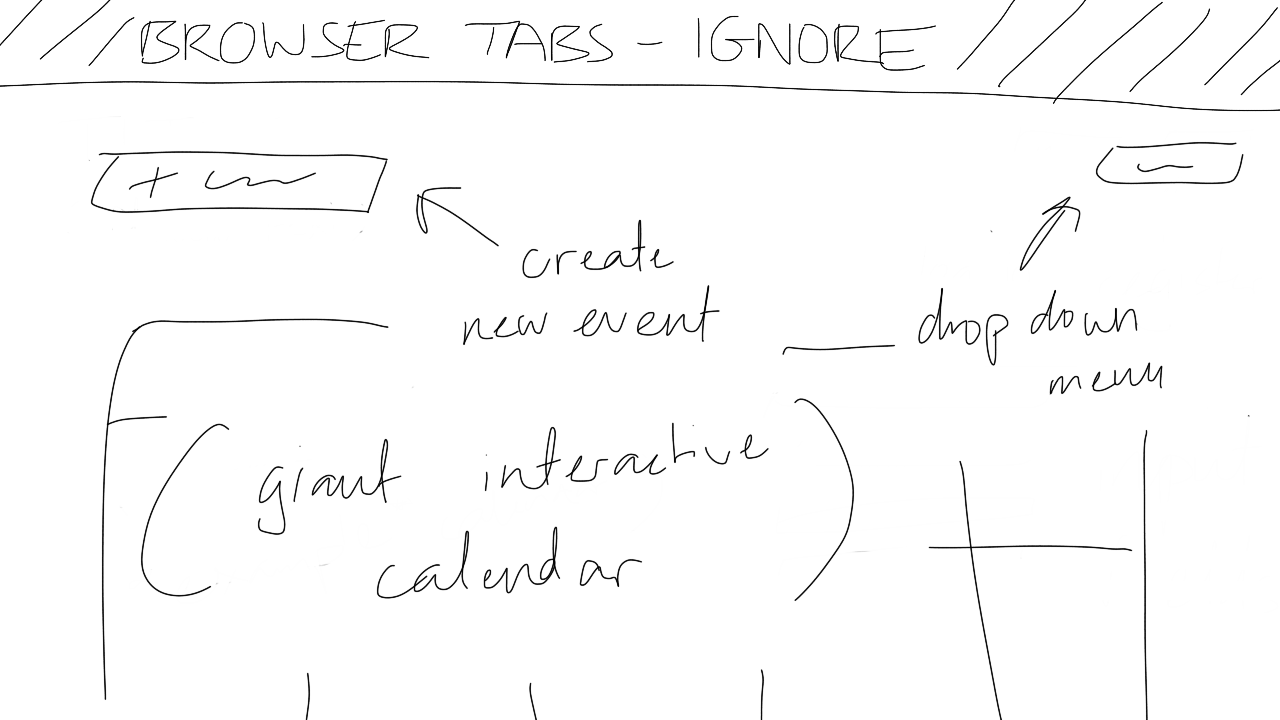 BROWSER TABS - IGNORE
+
create
new event
drop down
menu
(giant interactive
calendar)